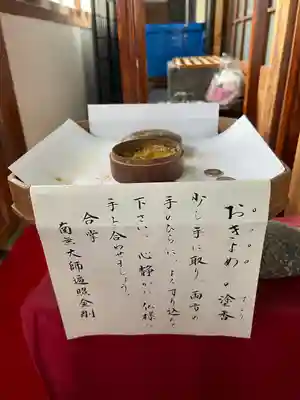 おきよめの塗香
ずこう
少し手に取り、両方の
手のひらに、よくすり込んで
下さい。心静かに、仏様に
手を合わせましょう。
合掌
南無大師遍照金剛